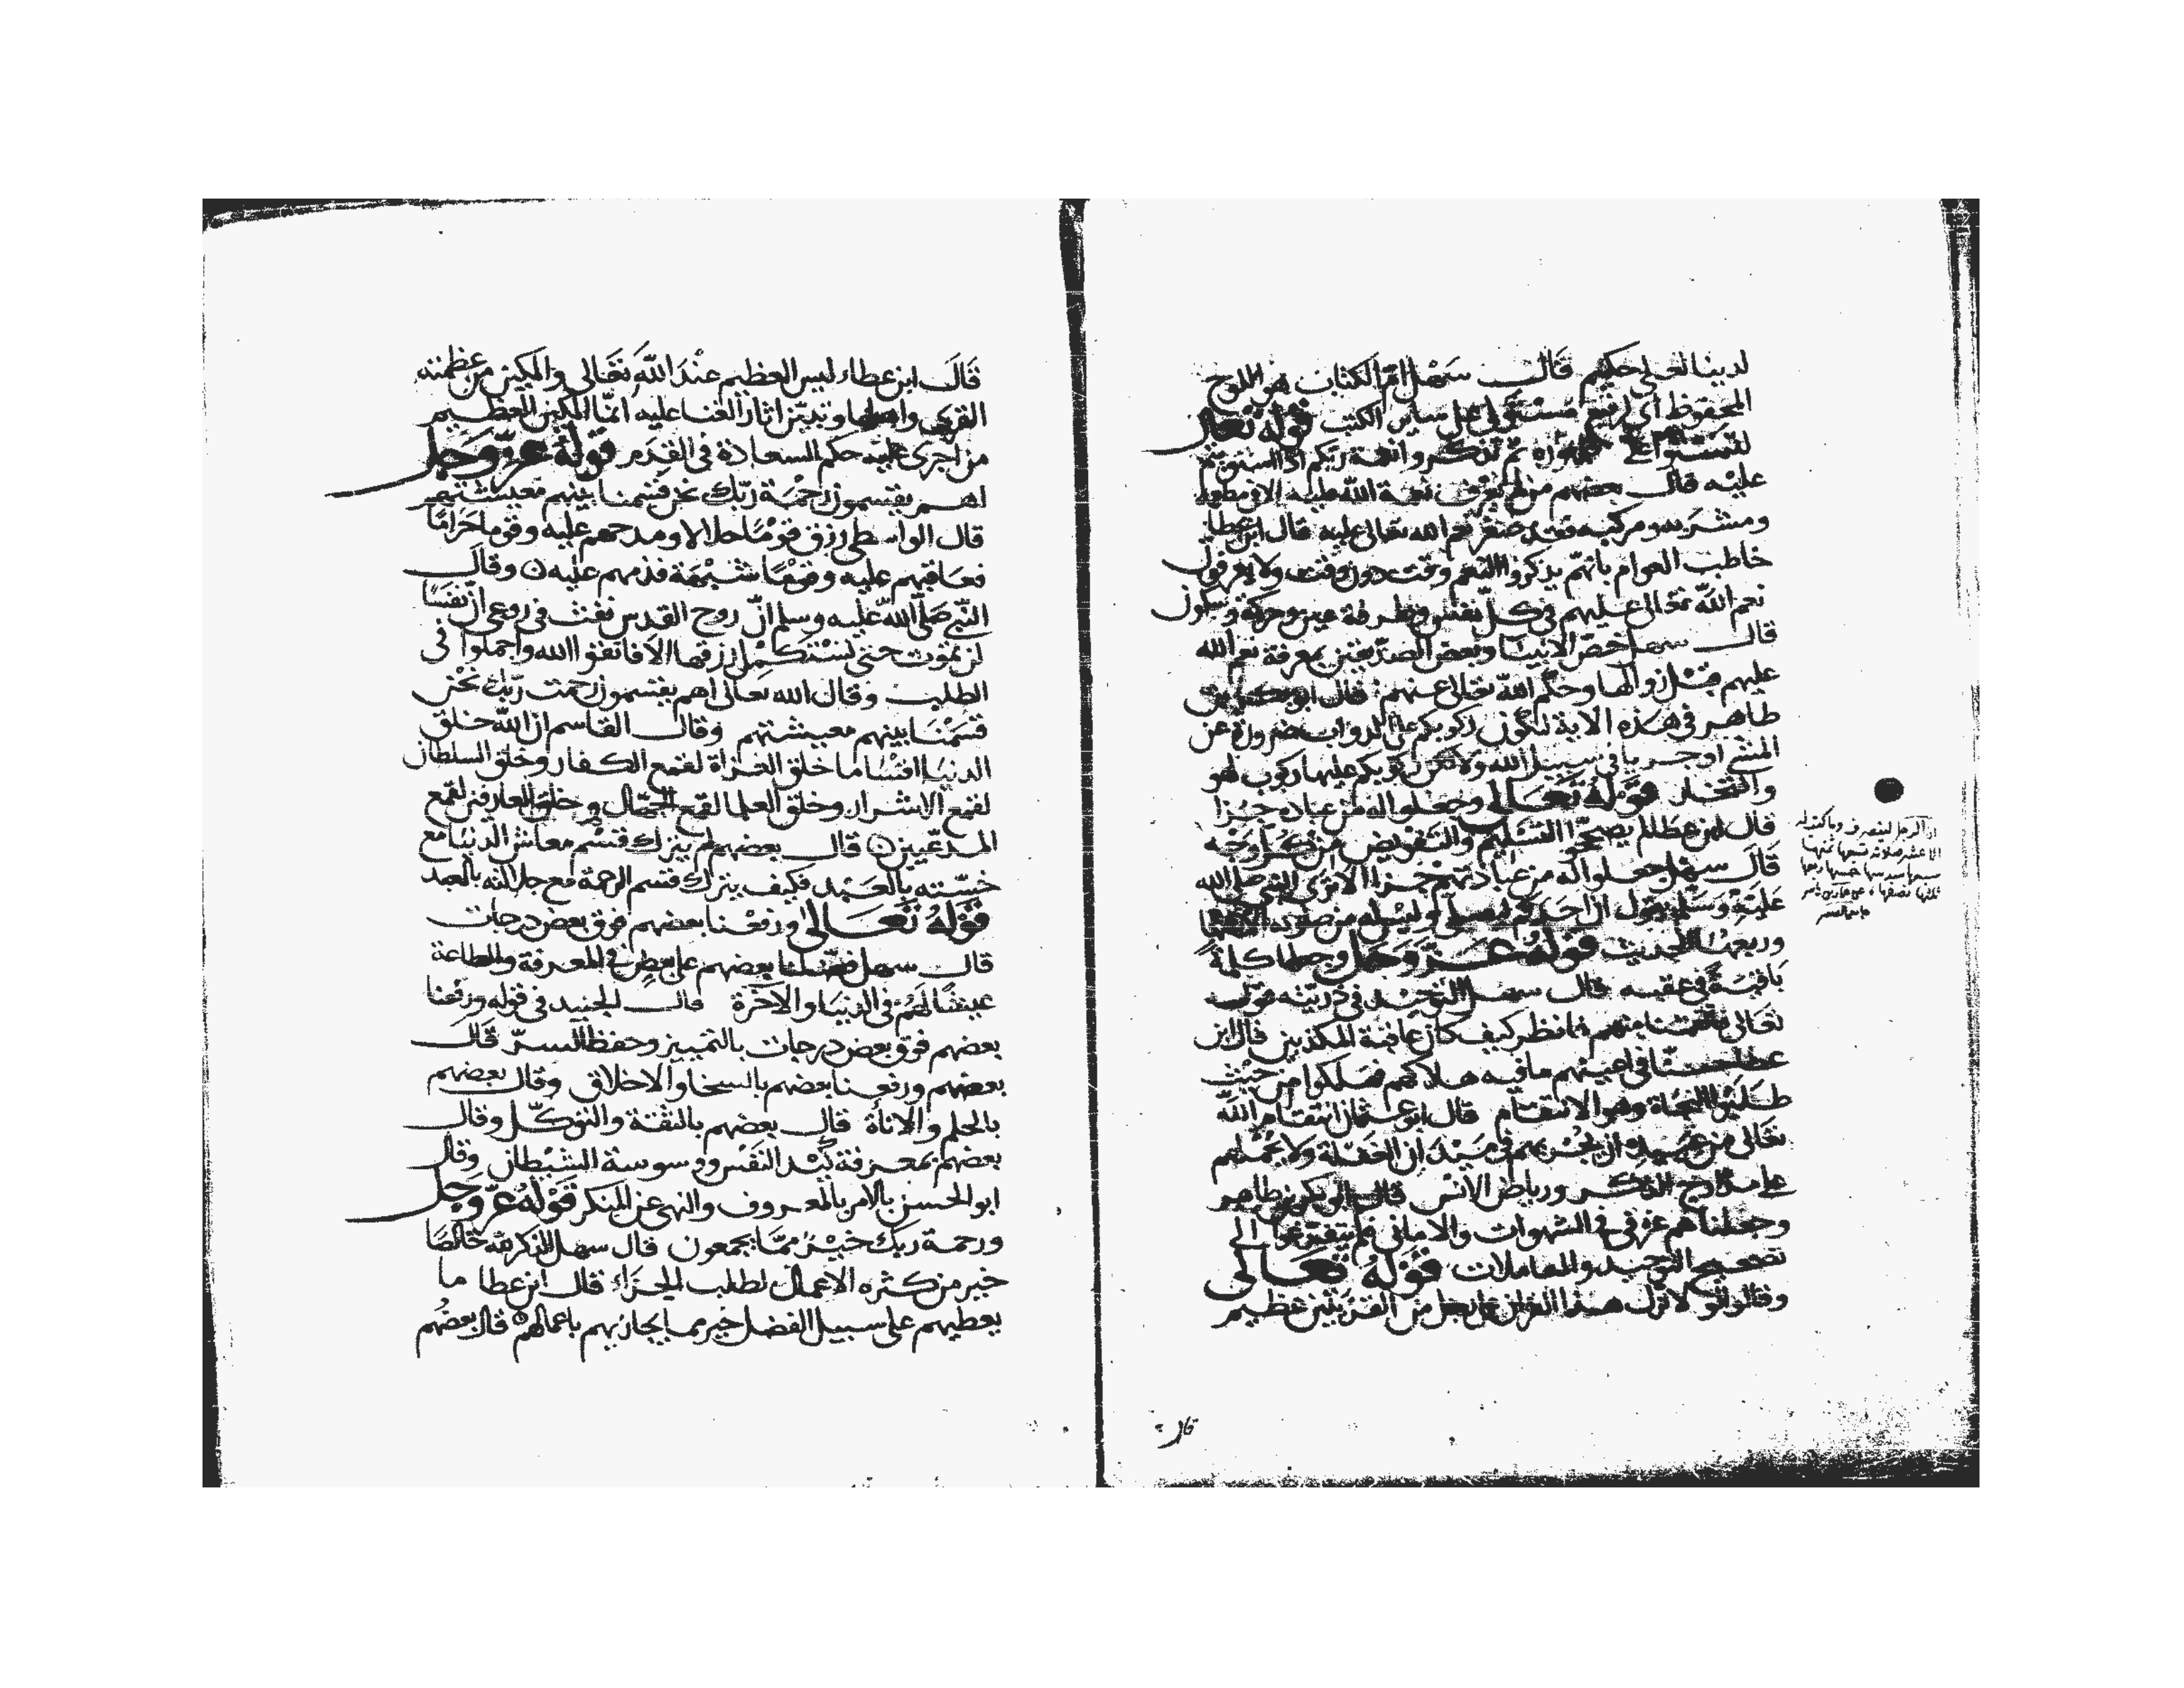 لدينا لعلي حكيم قال سهل ام الكتاب هو اللوح
المحفوظ اي رفيع مستولي على ساير الكتب قوله تعالى
لتستووا على ظهوره ثم تذكروا نعمة ربكم اذا استويتم
عليه قال بعضهم من لم يعرف نعمة الله عليه الا في مطعمه
ومشربه ومركبه فقد صغر نعم الله تعالى عليه قال ابن عطا
خاطب العوام بانهم يذكروا النعم وقت دون وقت ولا يعرفون
نعم الله تعالى عليهم في كل نفس وطرفة عين وحركة وسكون
قال سهل خص الانبيا وبعض الصديقين بمعرفة نعم الله
عليهم قبل زوالها وحلم الله تعالى عنهم قال ابو بكر بن
طاهر في هذه الاية لتكون ركوبكم على الدواب ضرورة عن
المشي او جريا في سبيل الله ولا تكن ركوبكم عليها ركوب لهو
وافتخار قوله تعالى وجعلوا له من عباده جزا
قال ابن عطا لم يصح التسليم والتفويض من وجه
قال سهل جعلوا له من عبادتهم جزا الا ترى النبي صلى الله
عليه وسلم يقول ان احدكم ليصلي وليس له من صلوته الا ثلثها
وربعها الحديث قوله عز وجل وجعلها كلمة
باقية في عقبه قال سهل التوحيد في ذريته قوله
تعالى فانتقمنا منهم فانظر كيف كان عاقبة المكذبين قال ابن
عطا حسنا في اعينهم ما فيه هلاكهم فهلكوا من حيث
طلبوا النجاة وهو الانتقام قال ابو عثمان انتقام الله
تعالى من عبيده ان يجريهم في ميدان الغفلة ولا يحملهم
على مدارج الذكر ورياض الانس قال ابو بكر بن طاهر
وجعلناهم غرقى في الشهوات والاماني فلم يتفرغوا الى
تصحيح التوحيد والمعاملات قوله تعالى
وقالوا لولا نزل هذا القران على رجل من القريتين عظيم
ان الرجل لينصرف وما كتب له
الا عشر صلاته تسعها ثمنها
سبعها سدسها خمسها ربعها
ثلثها نصفها عن عمار بن ياسر
قال
قال ابن عطاء ليس العظيم عند الله تعالى والمكين من عظمته
القرى واهلها وتبين اثار الغنا عليه انما المكين العظيم
من اجرى عليه حكم السعادة في القدم قوله عز وجل
اهم يقسمون رحمة ربك نحن قسمنا بينهم معيشتهم
قال الواسطي رزق قوما حلالا ومدحهم عليه وقوما حراما
فعاقبهم عليه وقوما شبهة فذمهم عليه وقال
النبي صلى الله عليه وسلم ان روح القدس نفث في روعي ان نفسا
لن تموت حتى تستكمل رزقها الا فاتقوا الله واجملوا في
الطلب وقال الله تعالى اهم يقسمون رحمت ربك نحن
قسمنا بينهم معيشتهم وقال القاسم ان الله خلق
الدنيا اقساما خلق الغزاة لقمع الكفار وخلق السلطان
لقمع الاشرار وخلق العلما لقمع الجهال وخلق العارفين لقمع
المدعيين قال بعضهم لم يترك قسم معاش الدنيا مع
خسته بالعبد فكيف يترك قسم الرحمة مع جلالته بالعبد
قوله تعالى ورفعنا بعضهم فوق بعض درجات
قال سهل فضلنا بعضهم على بعض في المعرفة والطاعة
عيشا لهم في الدنيا والاخرة قال الجنيد في قوله ورفعنا
بعضهم فوق بعض درجات بالتمييز وحفظ السر قال
بعضهم ورفعنا بعضهم بالسخا والاخلاق وقال بعضهم
بالحلم والاناة قال بعضهم بالثقة والتوكل وقال
بعضهم بمعرفة كيد النفس ووسوسة الشيطان وقال
ابو الحسن بالامر بالمعروف والنهي عن المنكر قوله عز وجل
ورحمة ربك خير مما يجمعون قال سهل الذكر لله خالصا
خير من كثره الاعمال لطلب الجزاء قال ابن عطا ما
يعطيهم على سبيل الفضل خير مما يجازيهم باعمالهم قال بعضهم